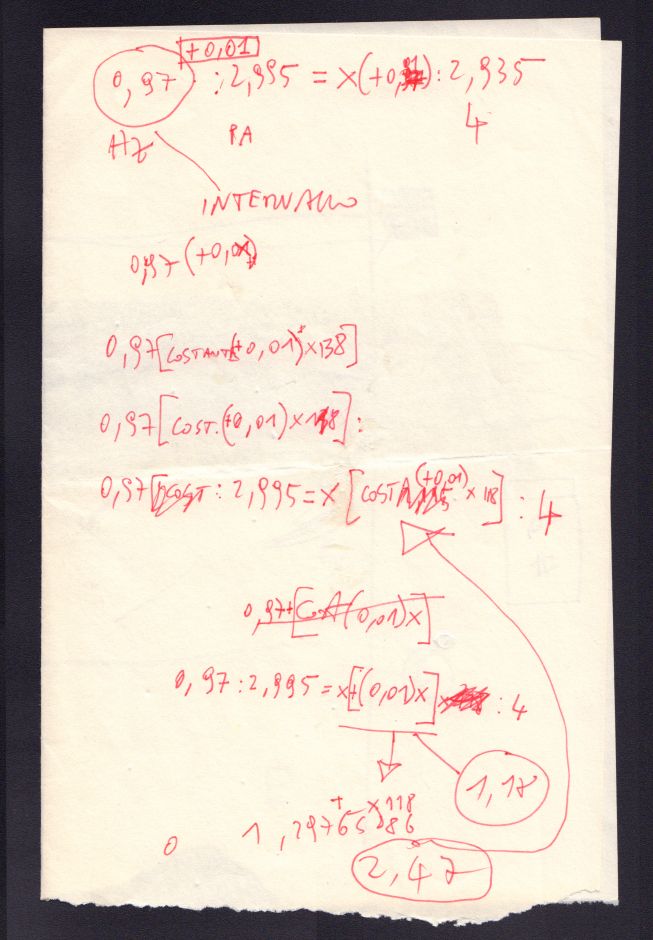 +0,01
0,97 : 2,995 = x(+0, ) : 2,935
Hz PA 4
INTERVALLO
0,97 (+0,01)
0,97 [COSTANTE(+0,01)+ x 138]
0,97 [COST. (+0,01) x 118] :
(+0,01)
0,97 [COST : 2,995 = x [COSTA x 118] : 4
0,97+[COA(0,01)x]
0,97 : 2,995 = x+[(0,01)x] : 4
1,18
+ x 118
0 1,29765186
2,47